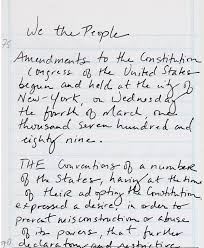 We the People
75
Amendments to the Constitution
Congress of the United States
begun and held at the city of
New-York, on Wednesday
the fourth of March, one
thousand seven hundred and
eighty nine.
THE Conventions of a number
of the States, having at the time
of their adopting the Constitution,
expressed a desire, in order to
prevent misconstruction or abuse
of its powers, that further
declaratory and restrictive